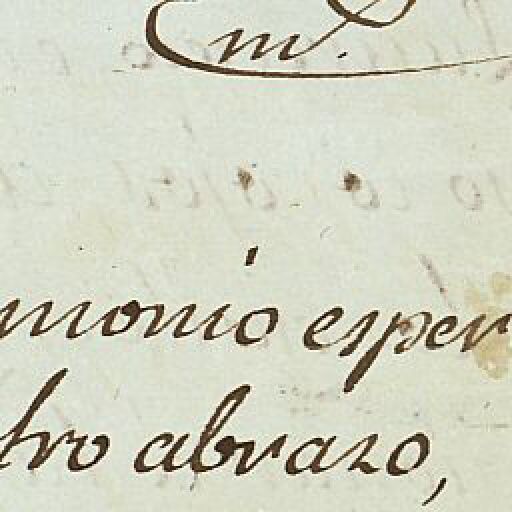 m.
monio esper
tro abrazo,